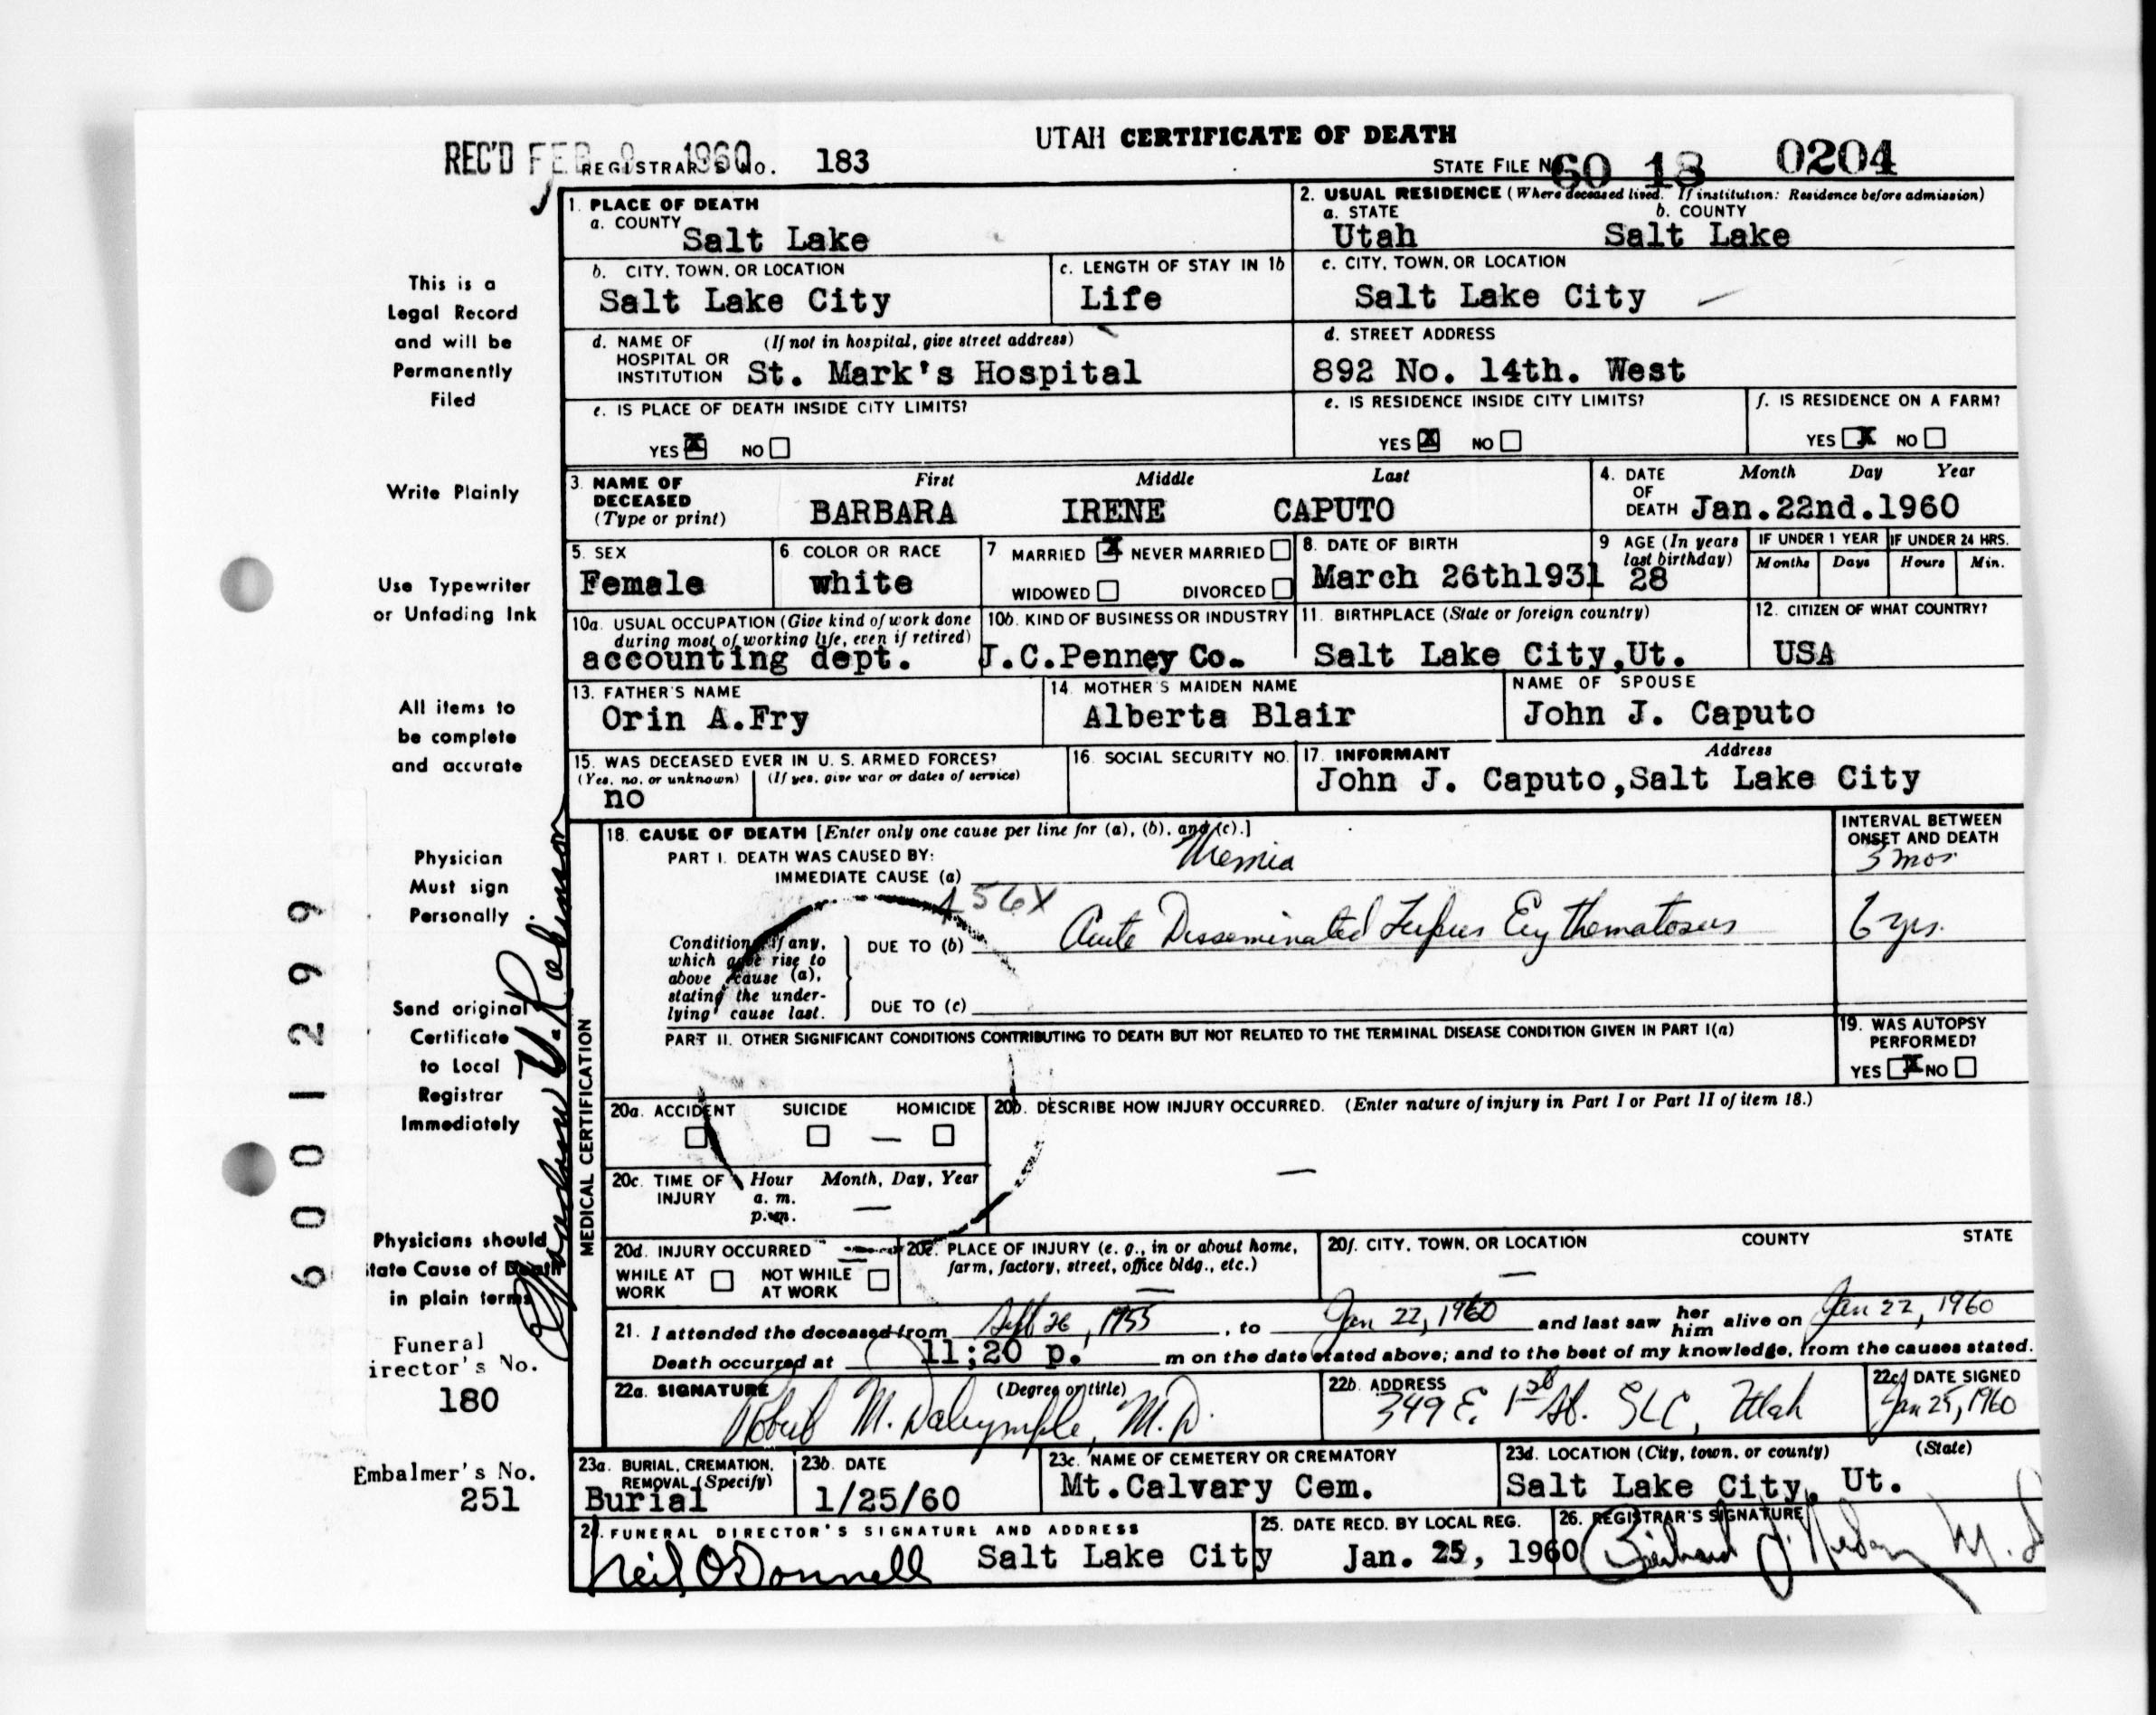 UTAH CERTIFICATE OF DEATH
REC'D FEB 9 1960 REGISTRAR'S NO. 183
STATE FILE NO. 60 18 0204
1. PLACE OF DEATH
a. COUNTY Salt Lake
2. USUAL RESIDENCE (Where deceased lived. If institution: Residence before admission)
a. STATE Utah b. COUNTY Salt Lake
b. CITY, TOWN, OR LOCATION Salt Lake City
c. LENGTH OF STAY IN 1b Life
c. CITY, TOWN, OR LOCATION Salt Lake City
d. NAME OF HOSPITAL OR INSTITUTION (If not in hospital, give street address) St. Mark's Hospital
d. STREET ADDRESS 892 No. 14th. West
e. IS PLACE OF DEATH INSIDE CITY LIMITS? YES X NO
e. IS RESIDENCE INSIDE CITY LIMITS? YES X NO
f. IS RESIDENCE ON A FARM? YES X NO
3. NAME OF DECEASED (Type or print) First Middle Last
BARBARA IRENE CAPUTO
4. DATE OF DEATH Month Day Year
Jan.22nd.1960
5. SEX Female
6. COLOR OR RACE white
7 MARRIED X NEVER MARRIED
WIDOWED DIVORCED
8. DATE OF BIRTH March 26th1931
9 AGE (In years last birthday) 28
IF UNDER 1 YEAR Months Days
IF UNDER 24 HRS. Hours Min.
10a. USUAL OCCUPATION (Give kind of work done during most of working life, even if retired) accounting dept.
10b. KIND OF BUSINESS OR INDUSTRY J.C.Penney Co.
11. BIRTHPLACE (State or foreign country) Salt Lake City,Ut.
12. CITIZEN OF WHAT COUNTRY? USA
13. FATHER'S NAME Orin A.Fry
14. MOTHER'S MAIDEN NAME Alberta Blair
NAME OF SPOUSE John J. Caputo
15. WAS DECEASED EVER IN U. S. ARMED FORCES?
(Yes, no, or unknown) (If yes, give war or dates of service)
no
16. SOCIAL SECURITY NO.
17. INFORMANT Address
John J. Caputo,Salt Lake City
MEDICAL CERTIFICATION
18. CAUSE OF DEATH [Enter only one cause per line for (a), (b), and (c).]
PART I. DEATH WAS CAUSED BY:
IMMEDIATE CAUSE (a) Uremia
INTERVAL BETWEEN ONSET AND DEATH
3 mos
456X
Conditions, if any, which gave rise to above cause (a), stating the underlying cause last.
DUE TO (b) Acute Disseminated Lupus Erythematosus
6 yrs.
DUE TO (c)
PART II. OTHER SIGNIFICANT CONDITIONS CONTRIBUTING TO DEATH BUT NOT RELATED TO THE TERMINAL DISEASE CONDITION GIVEN IN PART I(a)
19. WAS AUTOPSY PERFORMED?
YES X NO
20a. ACCIDENT SUICIDE HOMICIDE
20b. DESCRIBE HOW INJURY OCCURRED. (Enter nature of injury in Part I or Part II of item 18.)
20c. TIME OF INJURY Hour Month, Day, Year
a. m.
p. m.
20d. INJURY OCCURRED
WHILE AT WORK NOT WHILE AT WORK
20e. PLACE OF INJURY (e. g., in or about home, farm, factory, street, office bldg., etc.)
20f. CITY, TOWN, OR LOCATION COUNTY STATE
21. I attended the deceased from Sept 26, 1955, to Jan 22, 1960 and last saw her him alive on Jan 22, 1960
Death occurred at 11:20 p. m on the date stated above; and to the best of my knowledge, from the causes stated.
22a. SIGNATURE (Degree or title) Robert M. Dalrymple, M.D.
22b. ADDRESS 349 E. 1st So. SLC, Utah
22c. DATE SIGNED Jan 25, 1960
23a. BURIAL, CREMATION, REMOVAL (Specify) Burial
23b. DATE 1/25/60
23c. NAME OF CEMETERY OR CREMATORY Mt.Calvary Cem.
23d. LOCATION (City, town, or county) (State) Salt Lake City, Ut.
24. FUNERAL DIRECTOR'S SIGNATURE AND ADDRESS
Neil O'Donnell Salt Lake City
25. DATE RECD. BY LOCAL REG. Jan. 25, 1960
26. REGISTRAR'S SIGNATURE
This is a
Legal Record
and will be
Permanently
Filed
Write Plainly
Use Typewriter
or Unfading Ink
All items to
be complete
and accurate
Physician
Must sign
Personally
Send original
Certificate
to Local
Registrar
Immediately
Physicians should
state Cause of Death
in plain terms
Funeral
irector's No.
180
Embalmer's No.
251
6001299